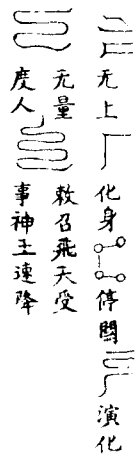 无上 化身 停 演化
无量 敕召飛天受
度人 事神王速降